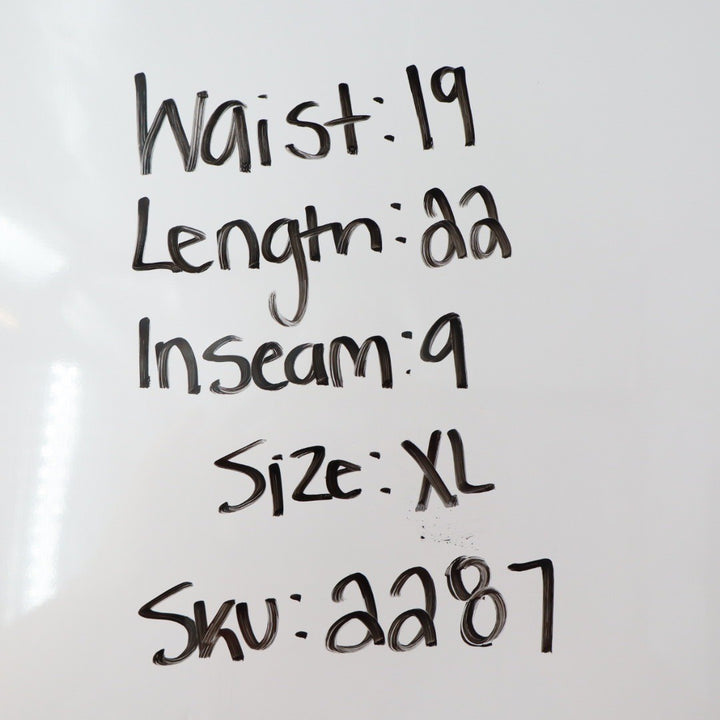 Waist: 19
Length: 22
Inseam: 9
Size: XL
Sku: 2287